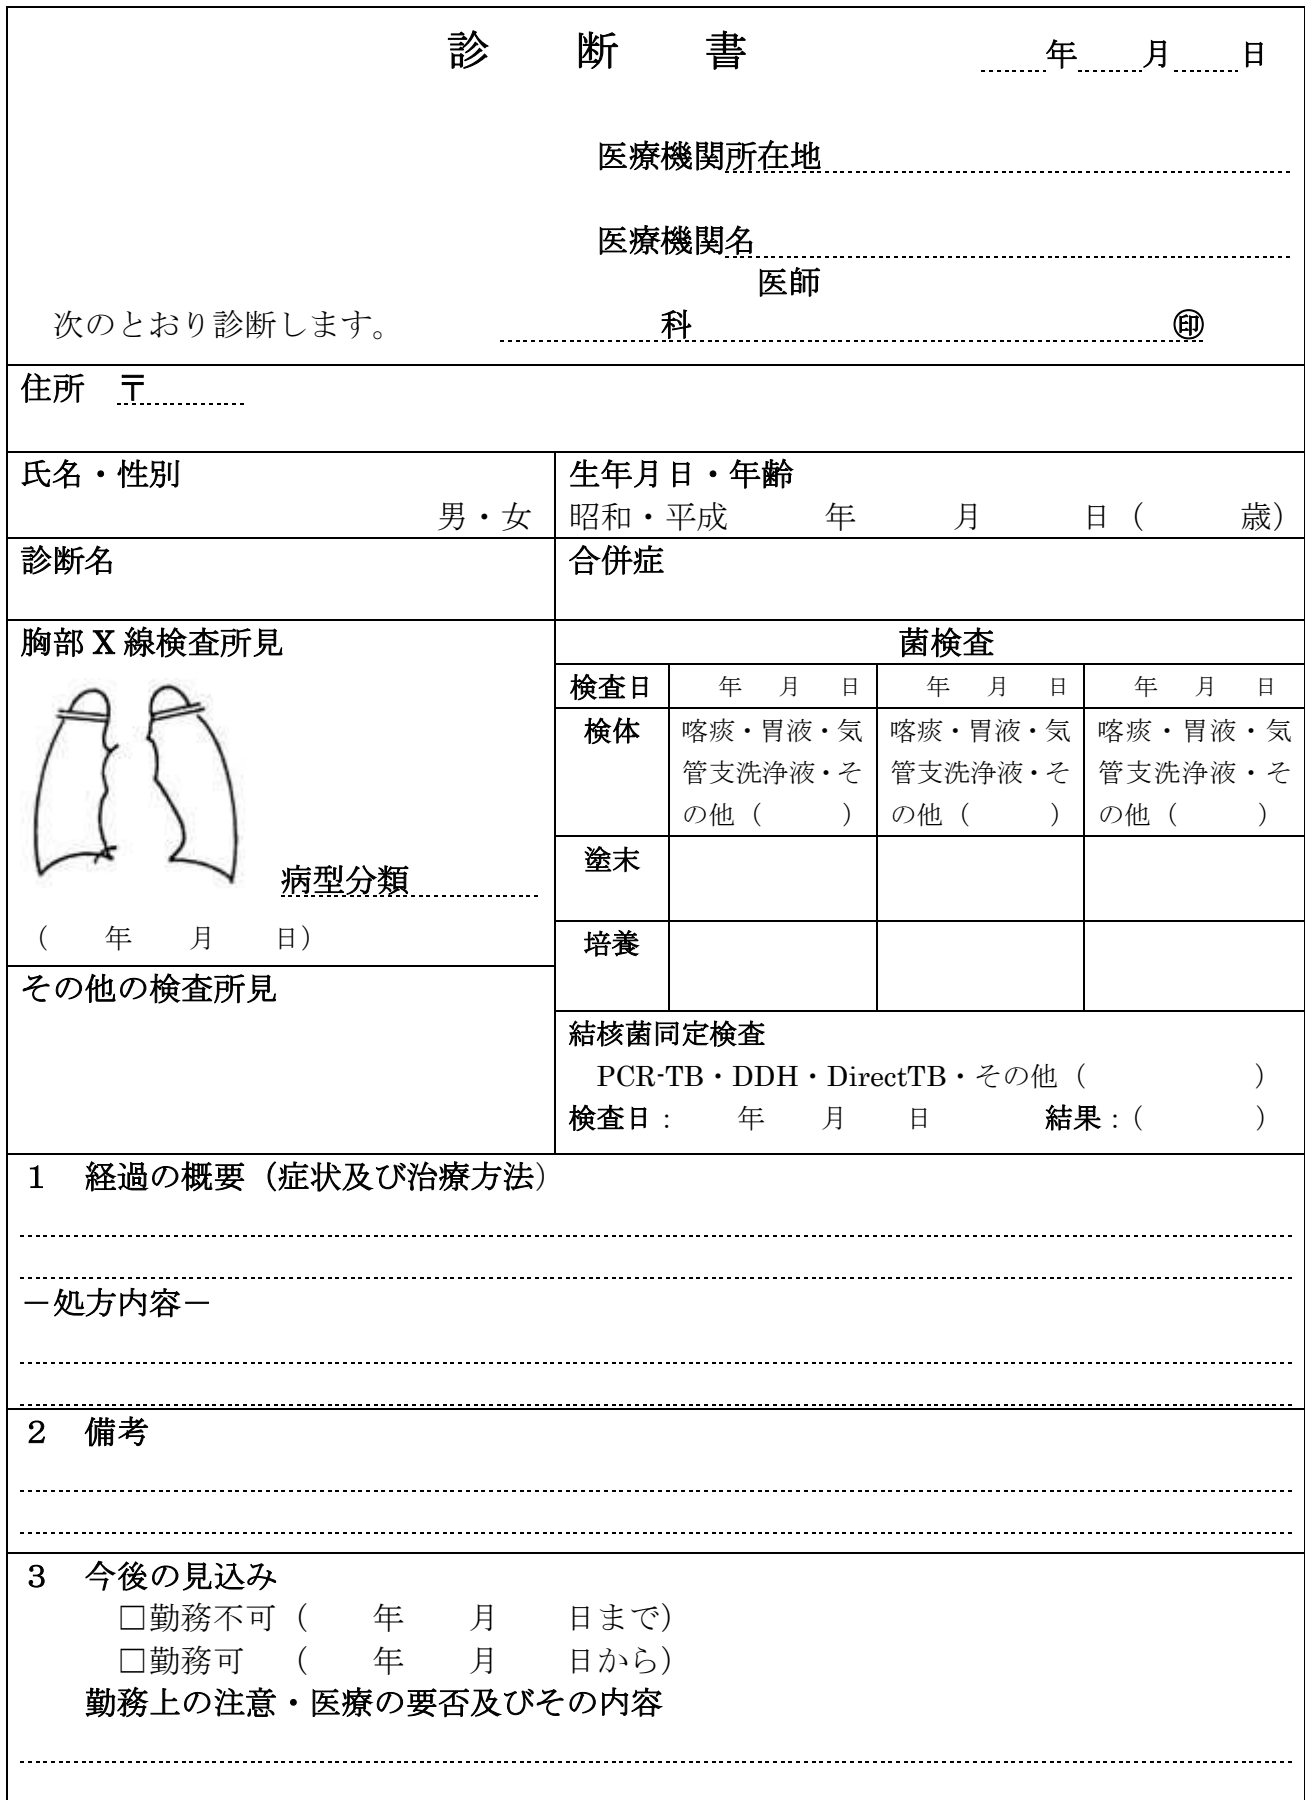 診　断　書　　年　月　日
医療機関所在地
医療機関名
医師
次のとおり診断します。　　科　　㊞
住所　〒
氏名・性別
男・女
生年月日・年齢
昭和・平成　　年　　月　　日（　　歳）
診断名
合併症
胸部 X 線検査所見
病型分類
（　　年　　月　　日）
その他の検査所見
菌検査
検査日　年　月　日　年　月　日　年　月　日
検体
喀痰・胃液・気
管支洗浄液・そ
の他（　　）
喀痰・胃液・気
管支洗浄液・そ
の他（　　）
喀痰・胃液・気
管支洗浄液・そ
の他（　　）
塗末
培養
結核菌同定検査
PCR-TB・DDH・DirectTB・その他（　　　）
検査日：　　年　　月　　日　　結果：（　　　）
１　経過の概要（症状及び治療方法）
－処方内容－
２　備考
３　今後の見込み
□勤務不可（　　年　　月　　日まで）
□勤務可　（　　年　　月　　日から）
勤務上の注意・医療の要否及びその内容